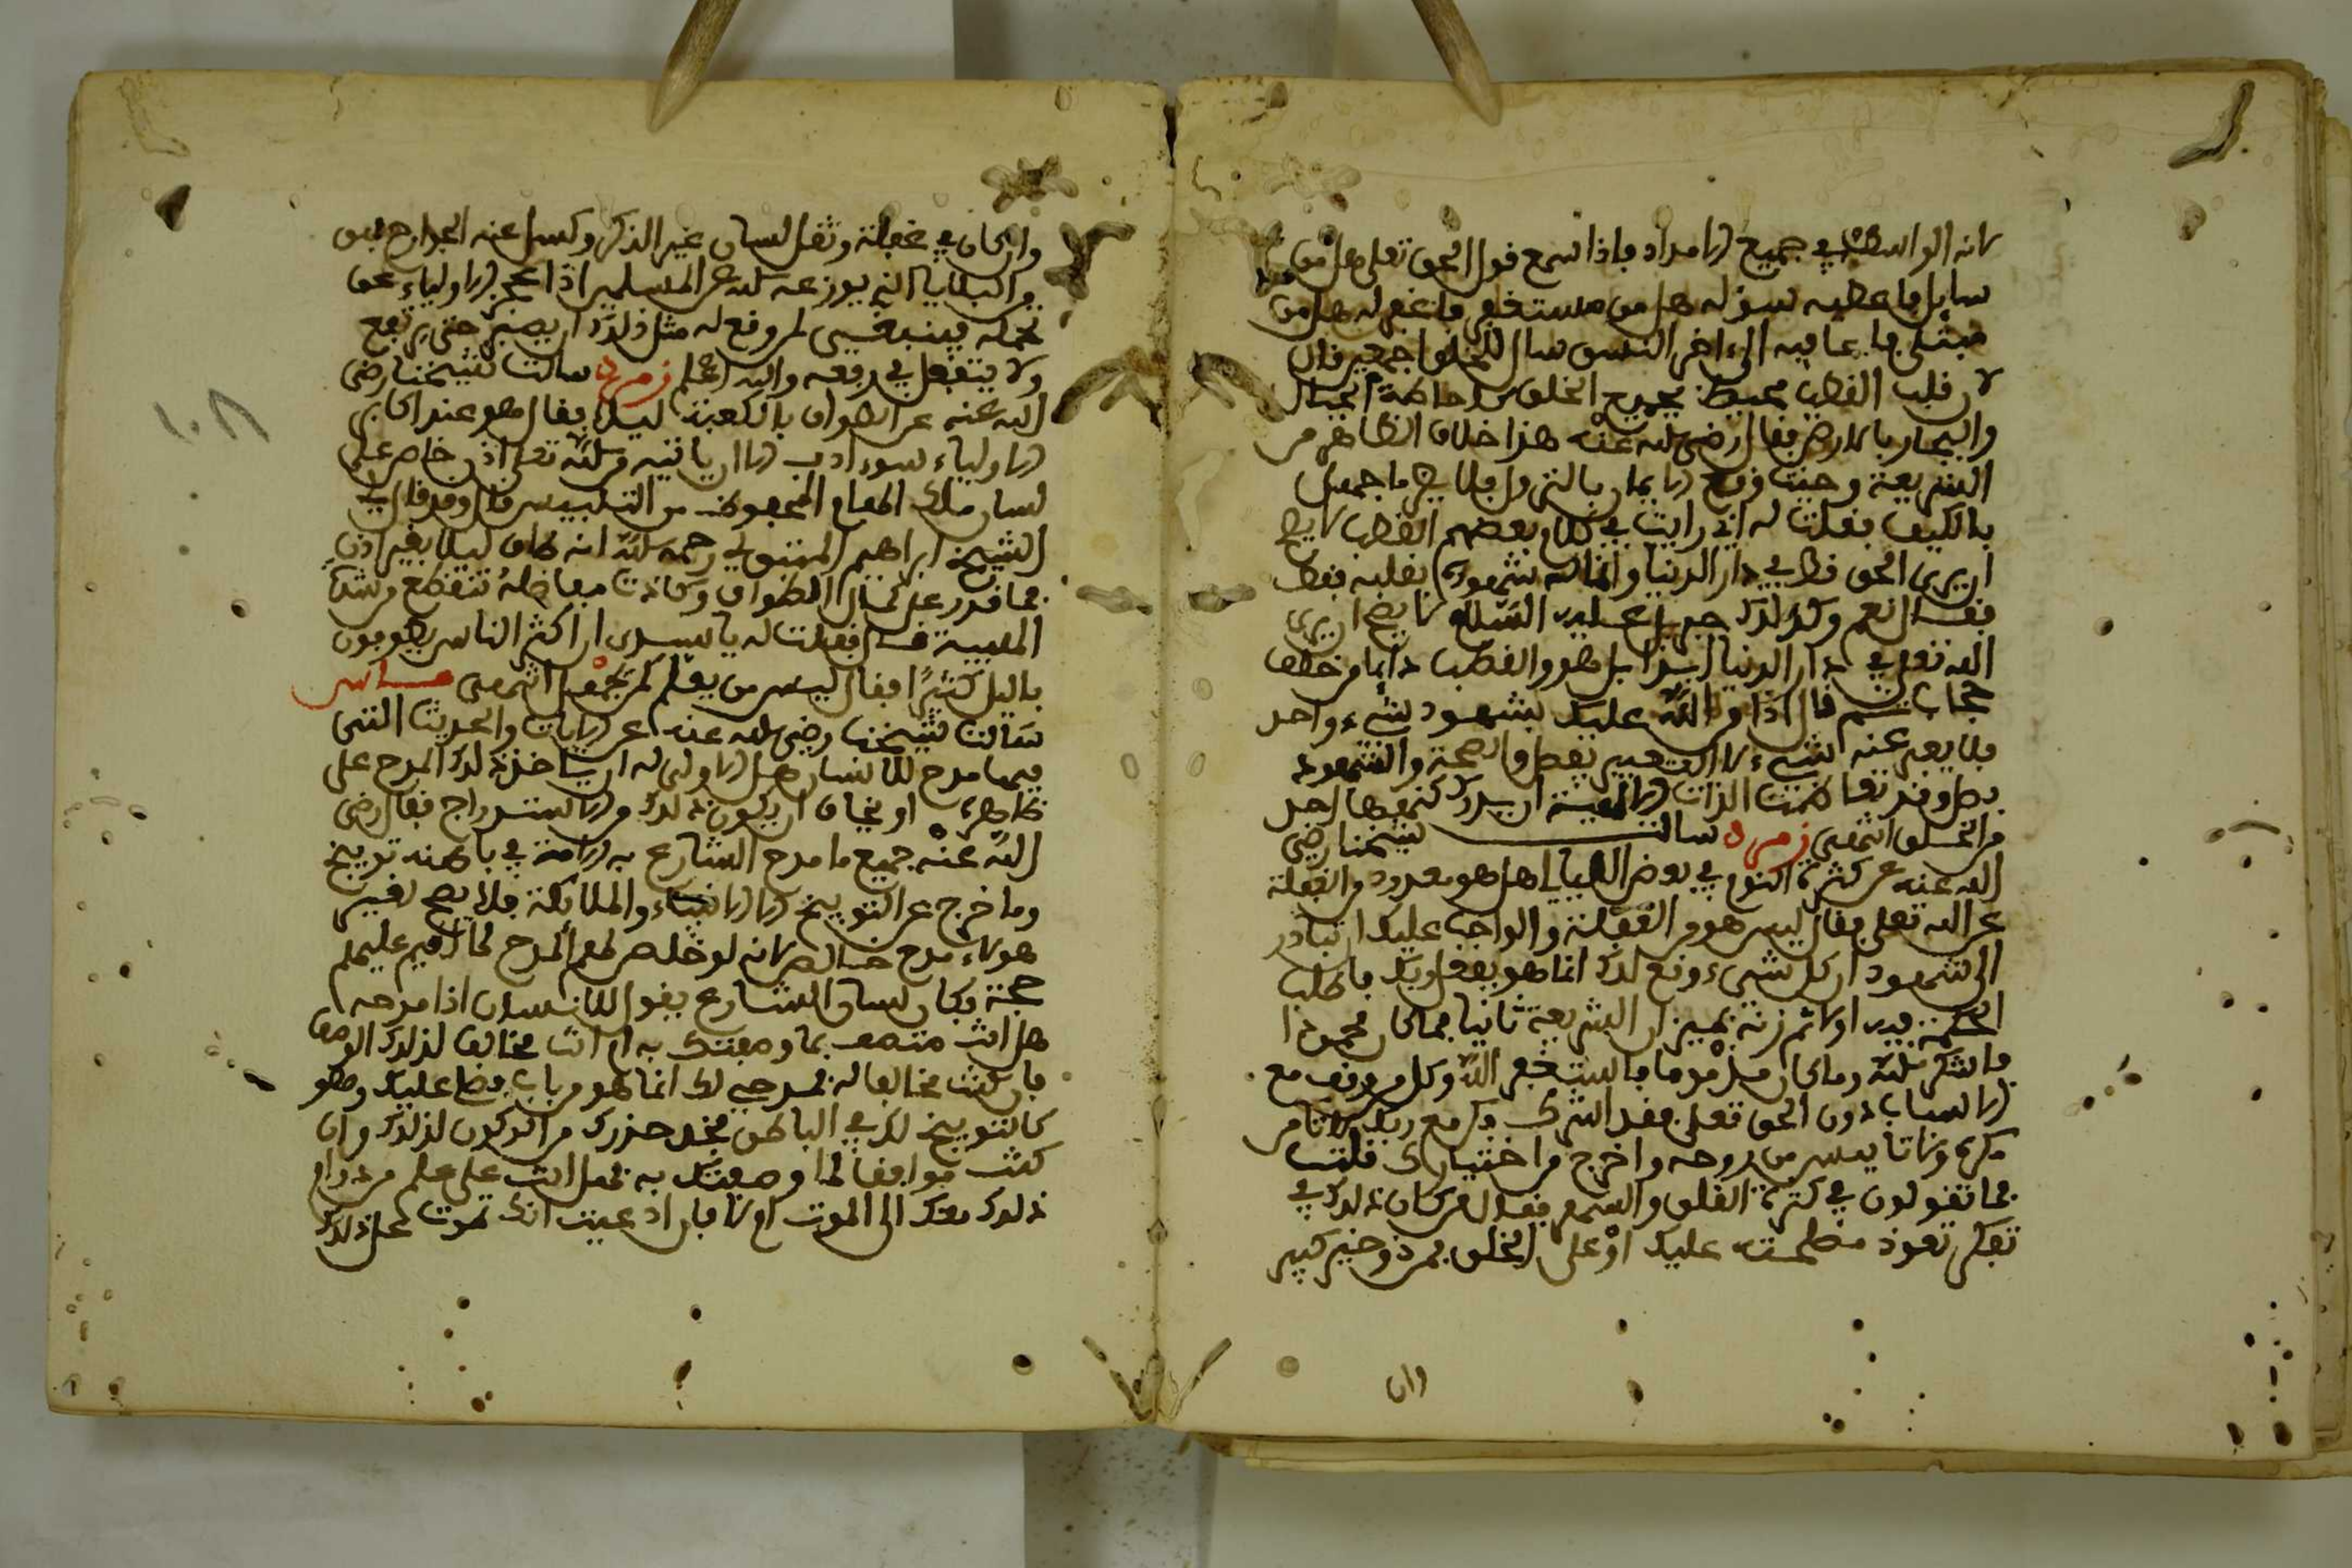 لانه الواسطة في جميع الامداد فاذا سمع قول الحق تعلى هل من
سايل فاعطيه سوله هل من مستغفر فاغفر له هل من
مبتلى فاعافيه الى اخر النسق سال للخلق اجمعين فان
لان قلب القطب محيط بجميع الخلق كاحاطة الجبال
والبحار بالارض فقال رضي الله عنه هذا خلاف الظاهر من
الشريعة وحيث وقع الايمان بالنزول فلا يضر ما جهل
بالكيف فقلت له اني رايت في كلام بعضهم القطب لا يصح
ان يرى الحق قط في دار الدنيا وانما له شهوده بقلبه فقط
فقال نعم وكذلك جبريل عليه السلام لا يصح ان يرى
الله تعلى في دار الدنيا ابدا بل هو والقطب دايما من خلف
حجاب ثم قال اذا من الله عليك بشهود شيء واحد
فلا يعبر عنه لشيء لان التعبير يعطي الصحة والشهود
يطر وقد تعاظمت الذات الالهية ان يدرك كنهها احد
من الخلق انتهى زمرد سالت شيخنا رضي
الله عنه عن كثرة النوم في بعض الليالي هل هو معدود من الغفلة
عن الله تعلى فقال ليس هو من الغفلة والواجب عليك ان تبادر
الى شهود ان كل شيء وقع لك انما هو بفعل ربك فاطلب
الحكمة فيه اولا ثم زنه بميزان الشريعة ثانيا فما كان محمودا
فاشكر الله وما كان مذموما فاستغفر الله وكل من وقف مع
الاسباب دون الحق تعلى فقد اشرك وكن مع ربك ولا تامن
مكره ولا تايس من روحه واخرج من اختيارك قلت
فما تقولون في كثرة القلق والسهر فقال ان كان ذلك في
تفكر نعوذ مظلمة عليك او على الخلق فهو ذو خير كبير
وان
وان كان في غفلة وثقل لسان عن الذكر وكسل عنه الجوارح فهو
من البلايا التي يوزعه الله على المسلمين اذا عجز الاولياء عن
تحمله فينبغي لمن وقع له مثل ذلك ان يصبر حتى يرتفع
ولا يتفعل في رفعه والله اعلم زمرد سالت شيخنا رضي
الله عنه عن الطواف بالكعبة ليلا فقال هو عند اكابر
الاولياء سوء ادب الا ان ياتيه من الله تعلى اذن خاص على
لسان ملك الالهام المحفوظ من التلبيس قال وقد طاف
الشيخ ابراهيم المتبولي رحمه الله انه طاف ليلا بغير اذن
فما قدر على كمال الطواف وكادت مفاصله تنقطع من شدة
الهيبة قال فقلت له يا سيدي ان اكثر الناس يطوفون
بالليل كثيرا فقال ليس من يعلم كمن يجهل انتهى ماس
سالت شيخنا رضي الله عنه عن الايات والحديث التي
فيها مدح للانسان هل الاولى له ان ياخذ ذلك المدح على
ظاهره او يخاف ان يكون ذلك من الاستدراج فقال رضي
الله عنه جميع ما مدح الشارع به الامة في باطنه توبيخ
وما خرج عن التوبيخ الا الانبياء والملائكة فلا يصح لغير
هولاء مدح خالص لانه لو خلص لهم المدح لما اقيم عليهم
حجة فكان لسان الشارع يقول للانسان اذا مدحه
هل انت متصف بما وصفتك به ام انت مخالف لذلك الوصف
فان كنت مخالفا له فمدحي لك انما هو من باب مضا عليك وهو
كالتوبيخ لك في الباطن فخذ حذرك من الركون لذلك وان
كنت موافقا لما وصفتك به فهل انت على علم من دوام
ذلك معك الى الموت ام لا فان ادعيت انك تموت على ذلك